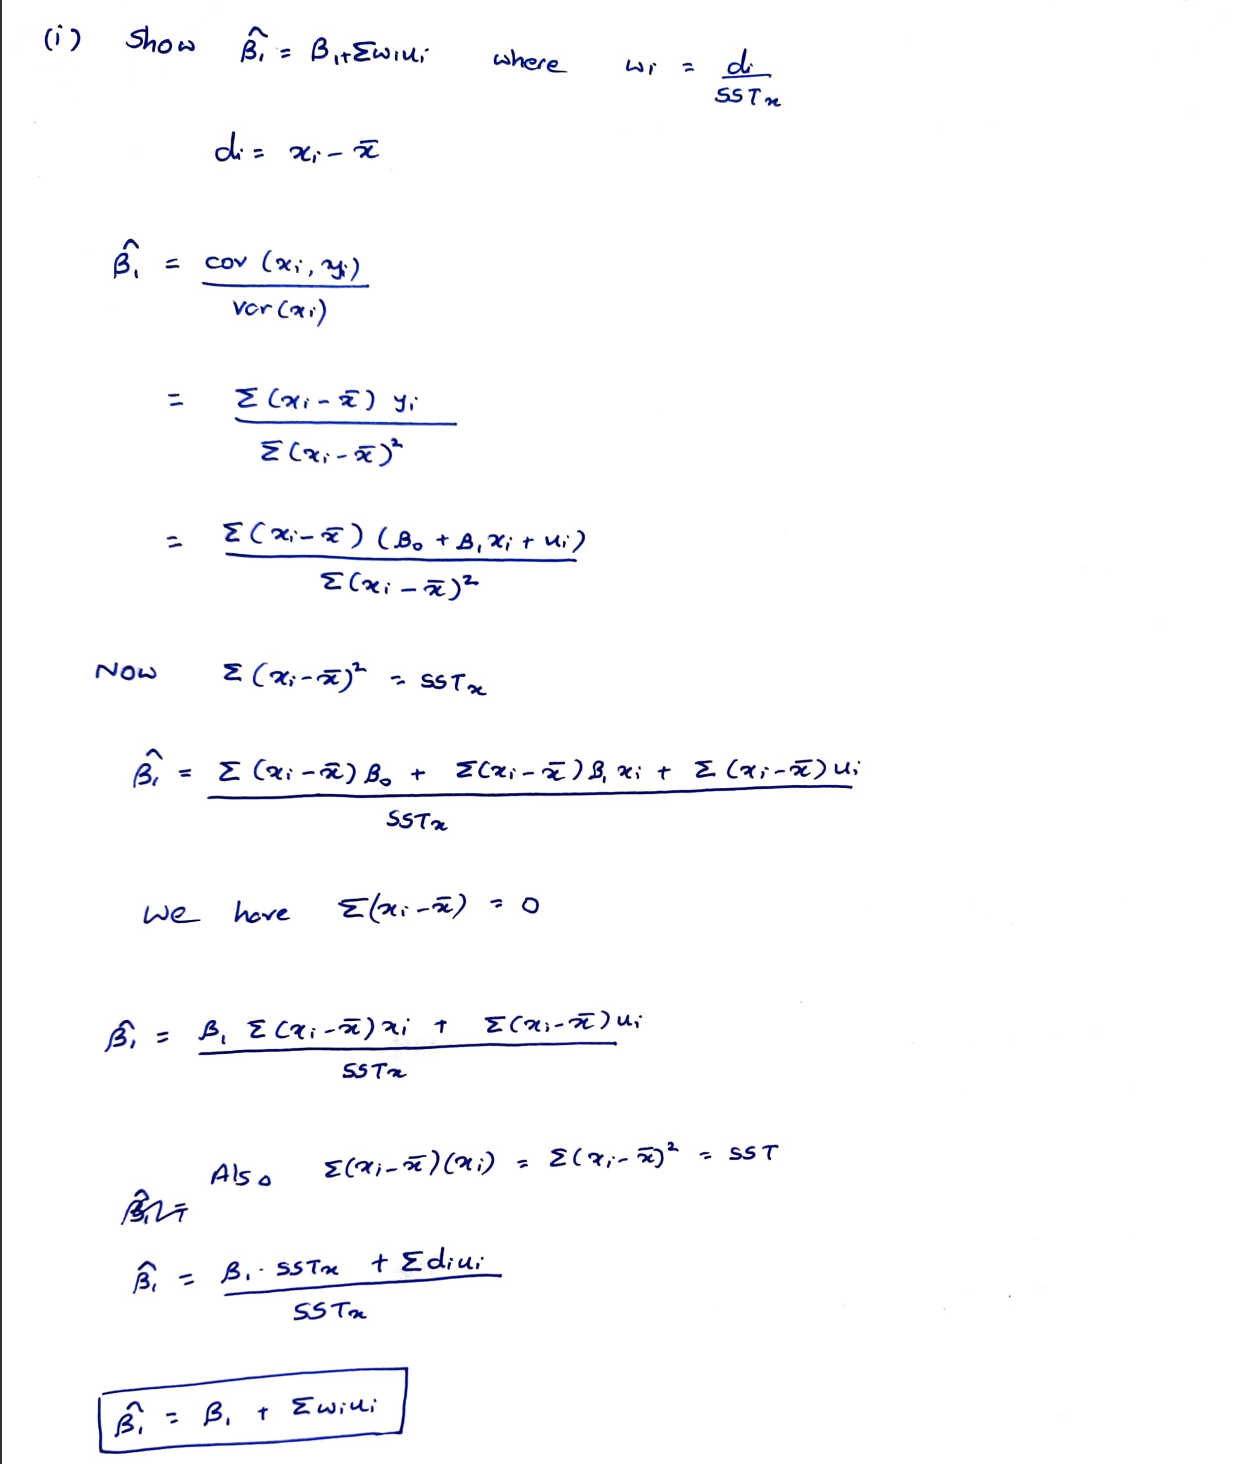 (i) Show β̂₁ = β₁+Σwᵢuᵢ where wᵢ = dᵢ / SSTx
dᵢ = xᵢ - x̄
β̂₁ = cov (xᵢ, yᵢ) / var (xᵢ)
= Σ (xᵢ - x̄) yᵢ / Σ (xᵢ - x̄)²
= Σ (xᵢ - x̄) (β₀ + β₁ xᵢ + uᵢ) / Σ (xᵢ - x̄)²
Now Σ (xᵢ - x̄)² = SSTx
β̂₁ = Σ (xᵢ - x̄) β₀ + Σ(xᵢ - x̄) β₁ xᵢ + Σ (xᵢ - x̄) uᵢ / SSTx
we have Σ(xᵢ - x̄) = 0
β̂₁ = β₁ Σ (xᵢ - x̄) xᵢ + Σ (xᵢ - x̄) uᵢ / SSTx
Also Σ(xᵢ - x̄) (xᵢ) = Σ (xᵢ - x̄)² = SST
β̂₁ = β₁ . SSTx + Σ dᵢuᵢ / SSTx
β̂₁ = β₁ + Σ wᵢuᵢ